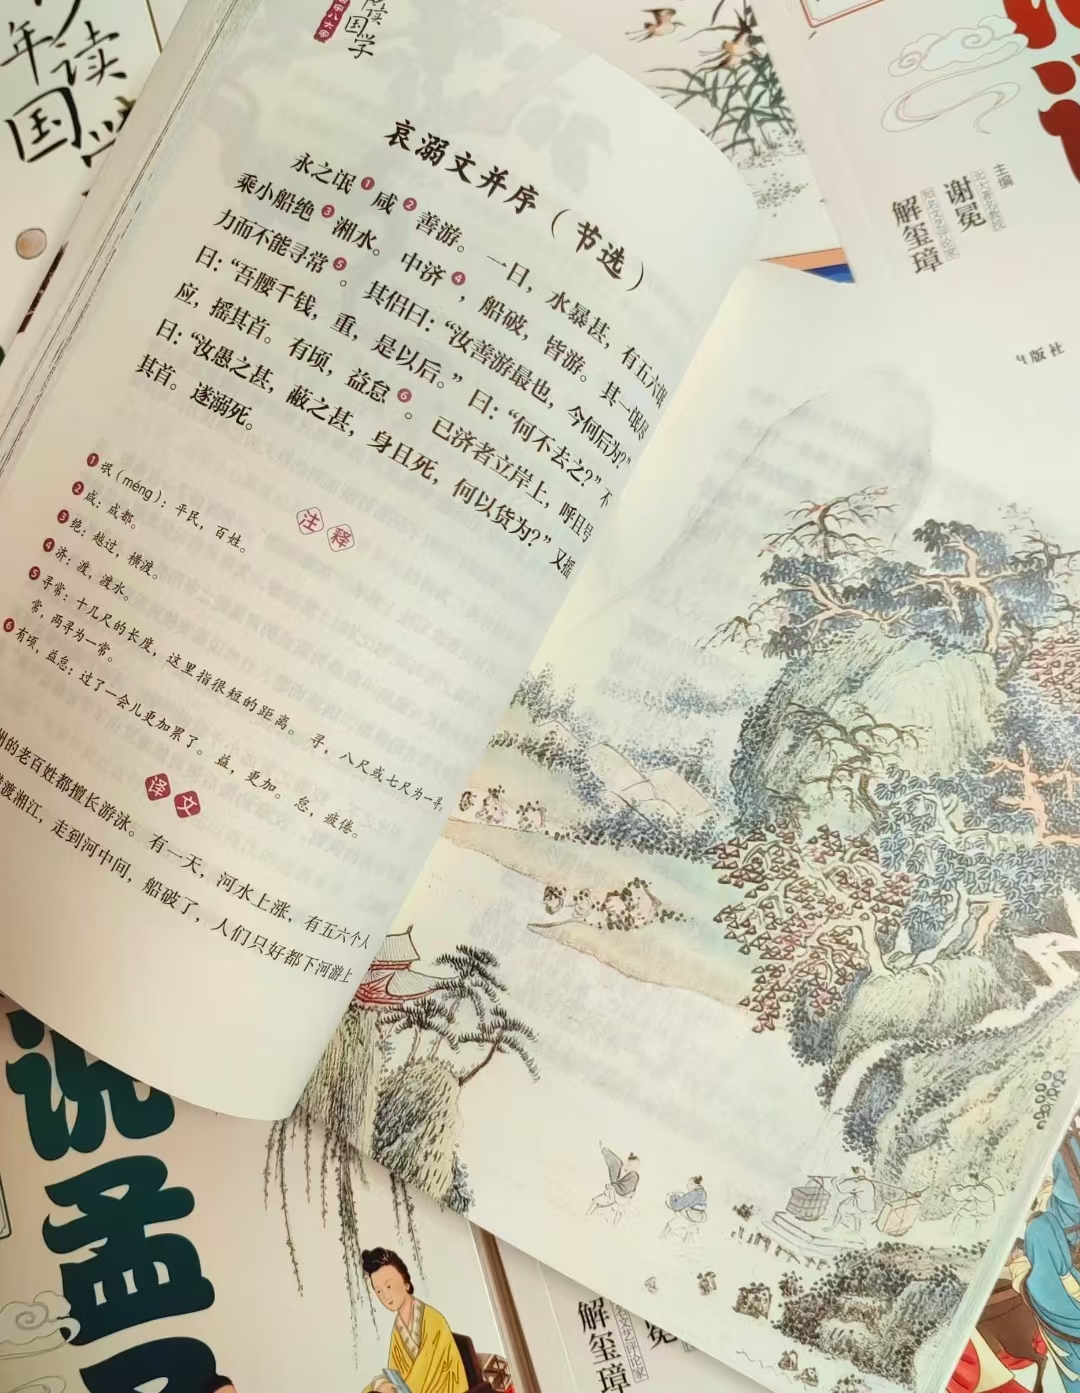 读国学
年读国学
哀溺文并序（节选）
永之氓❶咸❷善游。一日，水暴甚，有五六氓
乘小船绝❸湘水。中济❹，船破，皆游。其一氓尽
力而不能寻常❺。其侣曰：“汝善游最也，今何后为？”
曰：“吾腰千钱，重，是以后。”曰：“何不去之？”不
应，摇其首。有顷，益怠❻。已济者立岸上，呼且号
曰：“汝愚之甚，蔽之甚，身且死，何以货为？”又摇
其首。遂溺死。
注释
❶氓（méng）：平民，百姓。
❷咸：成都。
❸绝：越过，横渡。
❹济：渡，渡水。
❺寻常：十几尺的长度，这里指很短的距离。寻，八尺或七尺为一寻，
常，两寻为一常。
❻有顷，益怠：过了一会儿更加累了。益，更加。怠，疲倦。
译文
州的老百姓都擅长游泳。有一天，河水上涨，有五六个人
渡湘江，走到河中间，船破了，人们只好都下河游上
主编
谢冕
解玺璋
知名文艺评论家
版社
说孟
解玺璋
文艺评论家
冕